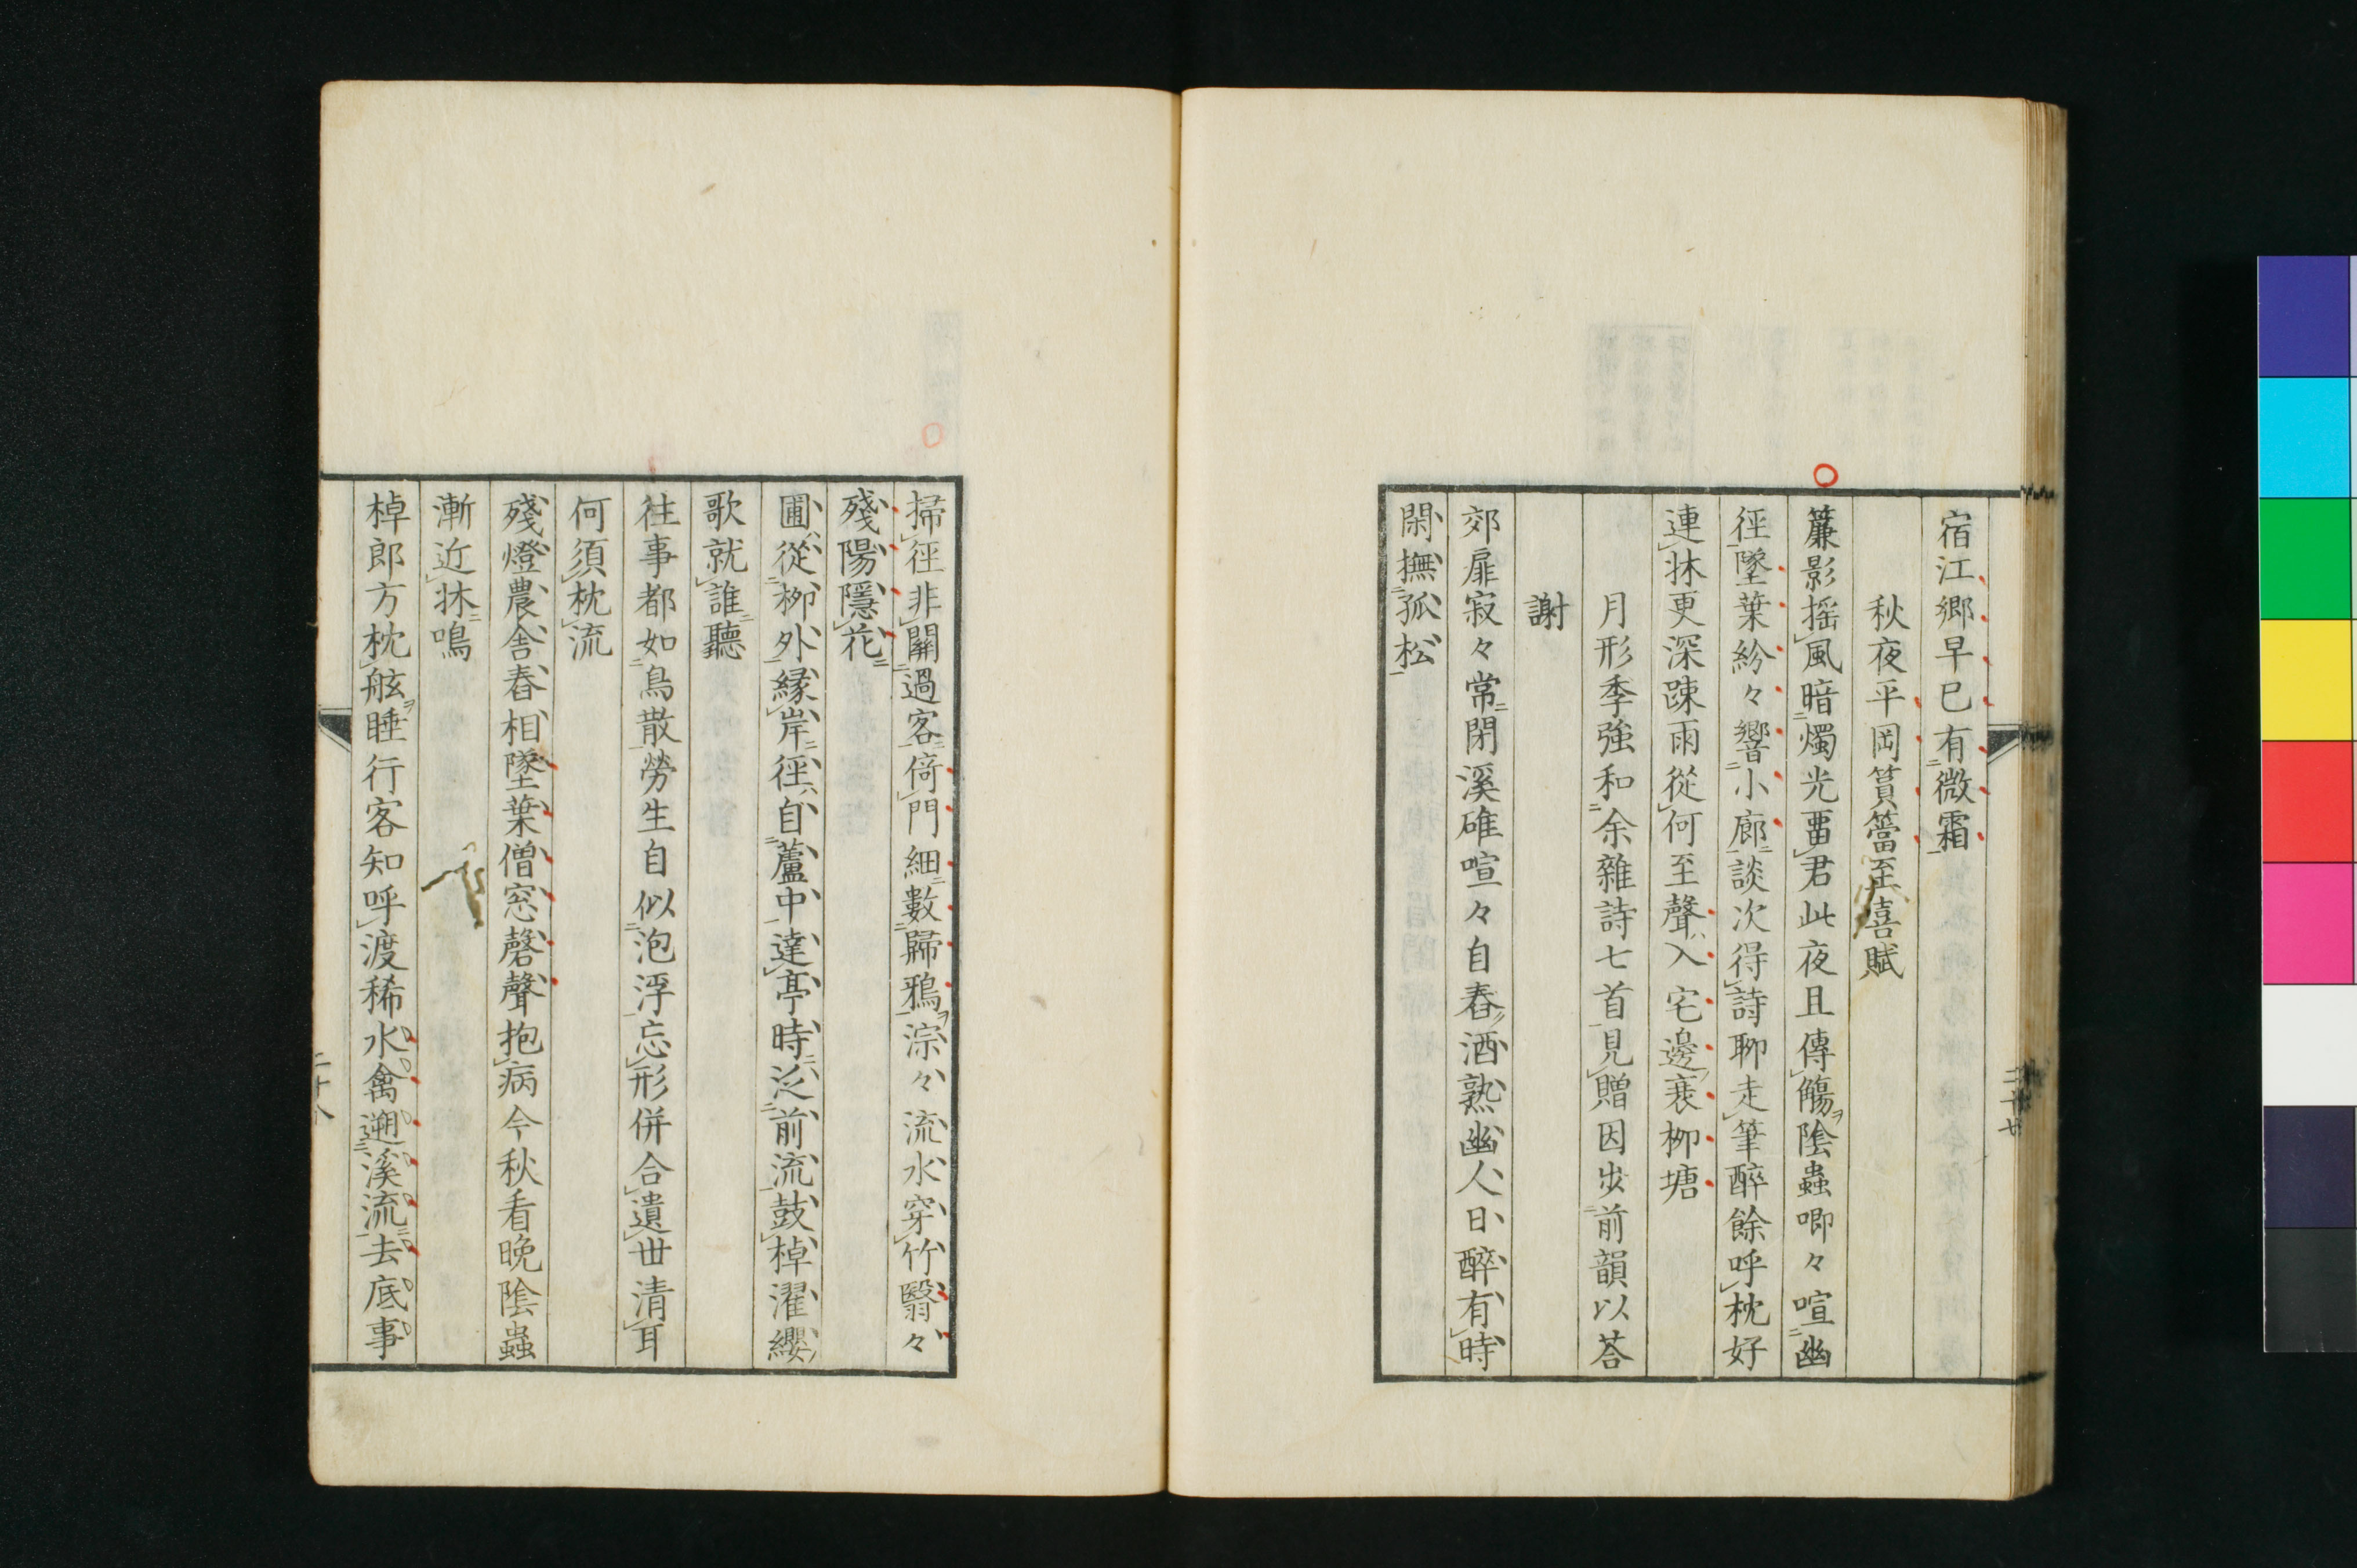 宿江郷早已有微霜
秋夜平岡篔簹至喜賦
簾影揺風暗燭光畱君此夜且傳觴陰蟲喞々喧幽
徑墜葉紛々響小廊談次得詩聊走筆醉餘呼枕好
連牀更深踈雨從何至聲入宅邊衰栁塘
月形季強和余雜詩七首見贈因步前韻以荅
謝
郊扉寂々常閉溪碓喧々自舂酒熟幽人日醉有時
閑撫孤松
二十七
掃徑非關過客倚門細數歸鴉淙々流水穿竹翳々
殘陽隱花
圃從栁外緣岸徑自蘆中達亭時泛前流鼓棹濯纓
歌就誰聽
往事都如鳥散勞生自似泡浮忘形併合遺世清耳
何須枕流
殘燈農舍舂相墜葉僧窓磬聲抱病今秋看晚陰蟲
漸近牀鳴
棹郎方枕舷睡行客知呼渡稀水禽遡溪流去底事
二十八